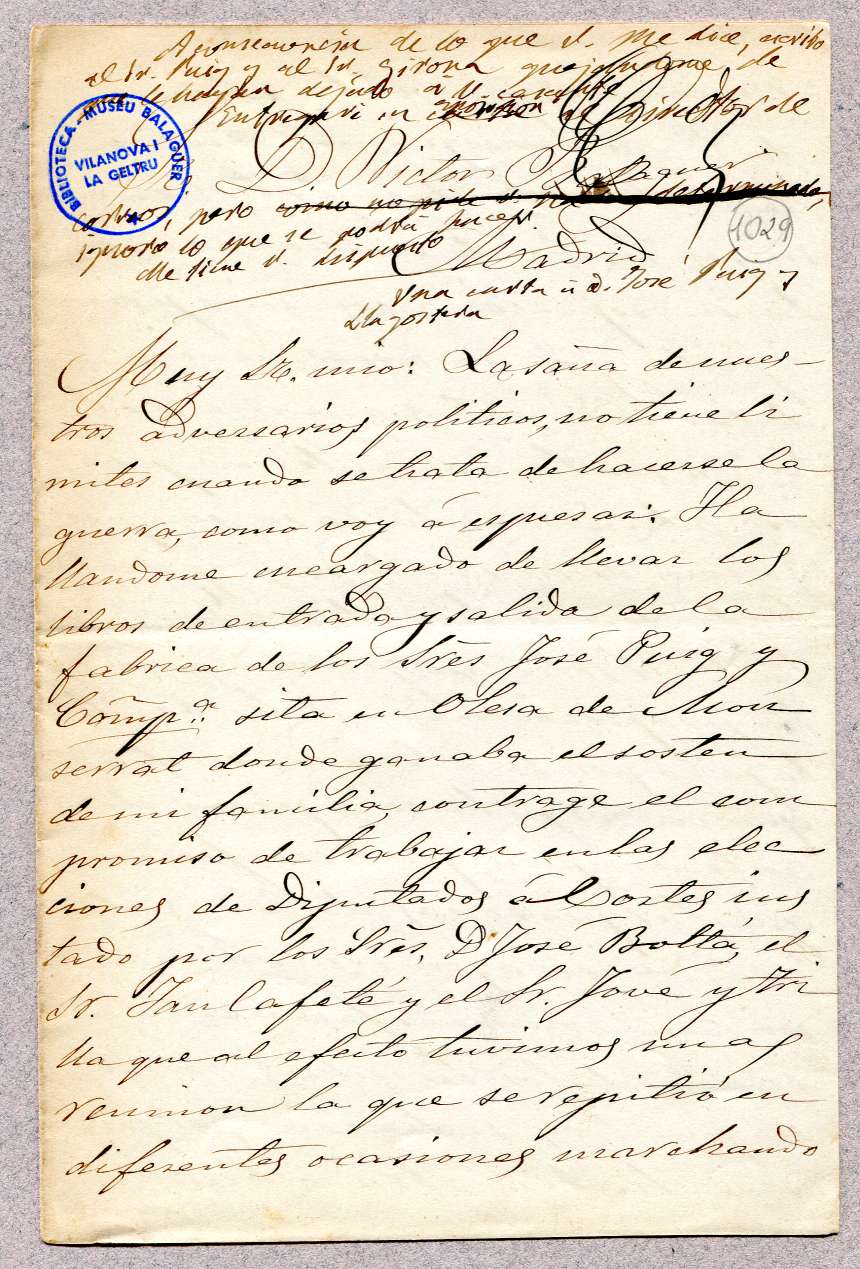 A consecuencia de lo que V. me dice, escribo
al Sr. Puig y al Sr. Girona quejandome de
que le hayan dejado á V. cesante
Entregaré en la Director de
Sr. D. Victor Balaguer
correos, pero como no pide V. determinada,
ignoro lo que se podrá hacer.
Me tiene V. dispuesto
Madrid
Una carta á D. José Puig y
Llagostera
BIBLIOTECA-MUSEU BALAGUER
VILANOVA I
LA GELTRU
1029
Muy Sr. mio: La saña de nues-
tros adversarios politicos, no tiene li
mites cuando se trata de hacerse la
guerra, como voy á espresar. Ha
llandome encargado de llevar los
libros de entrada y salida de la
fabrica de los Srês José Puig y
Comp.ª sita en Olesa de Mon
serrat donde ganaba el sosten
de mi familia, contrage el com
promiso de trabajar en las elec
ciones de Diputados á Cortes ins
tado por los Srês. D. José Boltá, el
Sr. Tan lafeté y el Sr. Jové y Tri
lla que al efecto tuvimos una
reunion la que se repitió en
diferentes ocasiones marchando